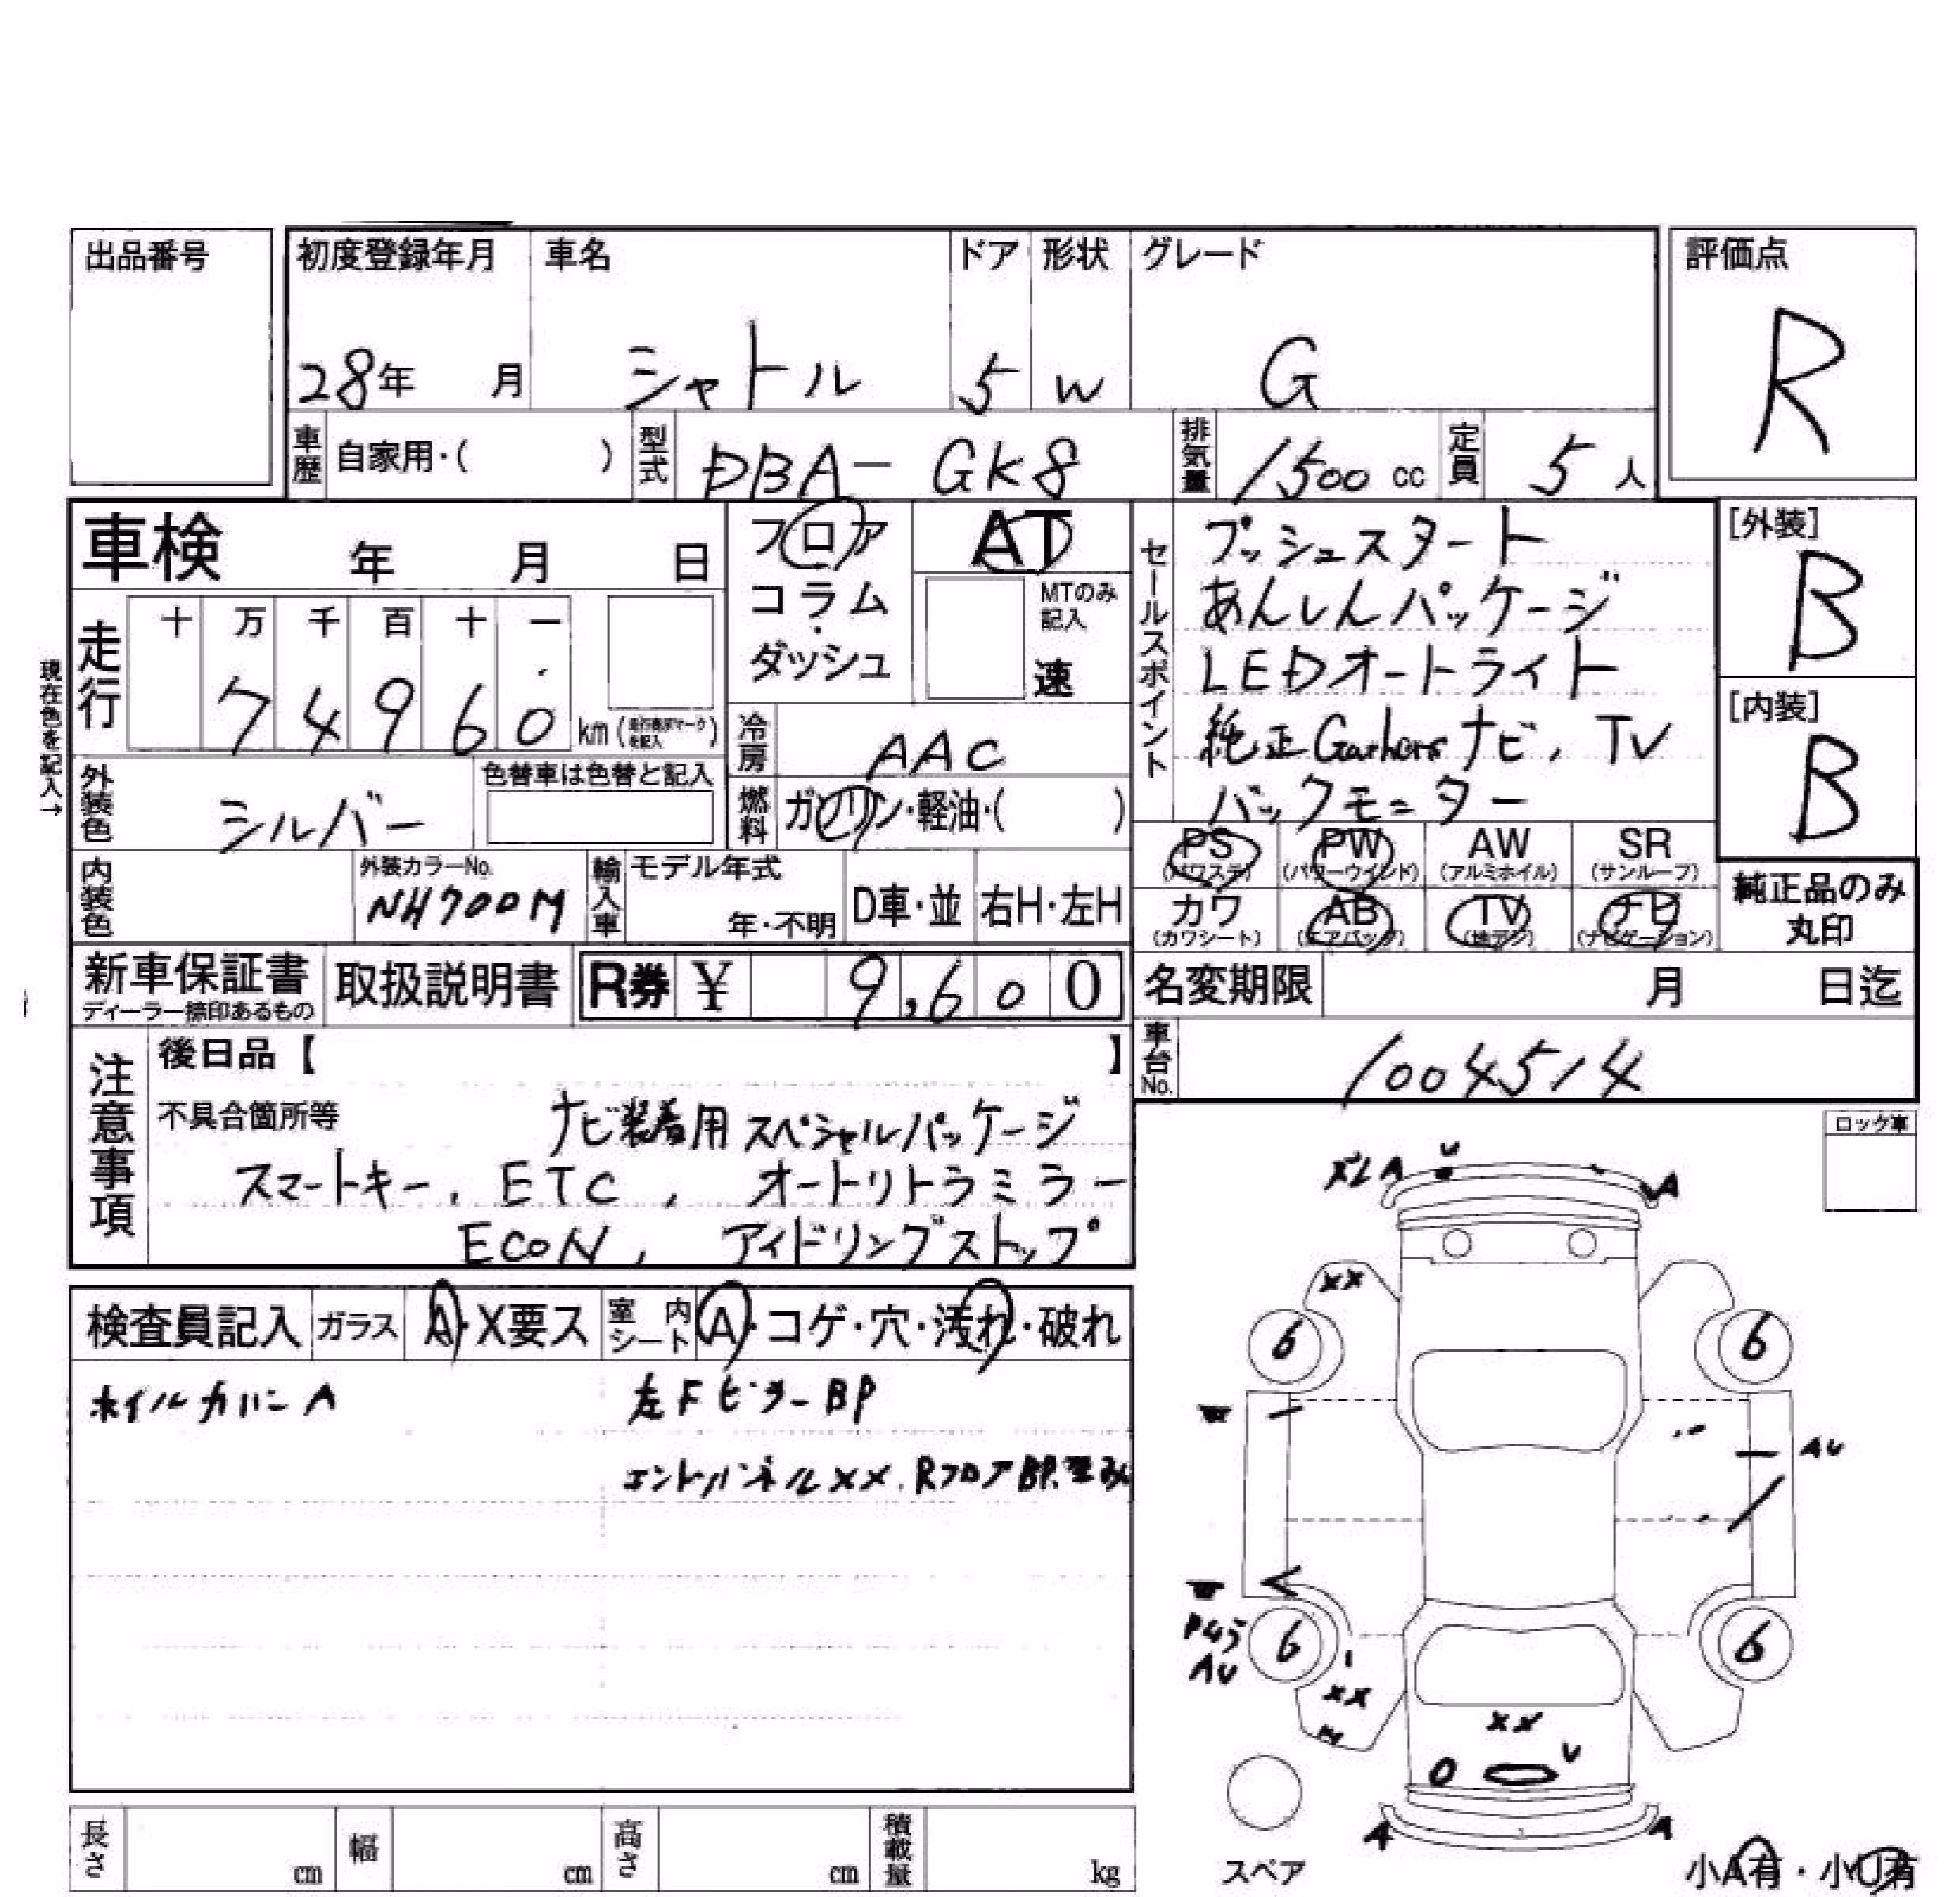 出品番号
初度登録年月 車名 ドア 形状 グレード 評価点
28年 月 シャトル 5 W G R
車歴 自家用・( ) 型式 DBA- GK8 排気量 1500 cc 定員 5 人
車検 年 月 日 フロア AT
コラム・ダッシュ MTのみ記入 速
現在色を記入→
走行 十 万 千 百 十 一
7 4 9 6 0 km
冷房 AAC
外装色 シルバー 色替車は色替と記入
燃料 ガソリン・軽油・( )
内装色 外装カラーNo. NH700M 輸入車 モデル年式 年・不明 D車・並 右H・左H
セールスポイント
プッシュスタート
あんしんパッケージ
LEDオートライト
純正Gathersナビ, TV
バックモニター
[外装]
B
[内装]
B
PS (パワステ) PW (パワーウインド) AW (アルミホイル) SR (サンルーフ)
カワ (カワシート) AB (エアバッグ) TV (地デジ) ナビ (ナビゲーション)
純正品のみ
丸印
新車保証書 ディーラー捺印あるもの 取扱説明書 R券 ¥ 9,600
名変期限 月 日迄
車台No. 1004514
注意事項
後日品【 】
不具合箇所等 ナビ装着用スペシャルパッケージ
スマートキー, ETC, オートリトラミラー
ECON, アイドリングストップ
ロック車
検査員記入 ガラス A・X要ス 室内シート A・コゲ・穴・汚れ・破れ
ホイルカバーA 左FピラーBP
エンドパネルXX. RフロアBP.
XLA U
A
XX
6 6
AU
6 6
AU
XX
XX
U
A A
スペア
小A有・小U有
長さ cm 幅 cm 高さ cm 積載量 kg